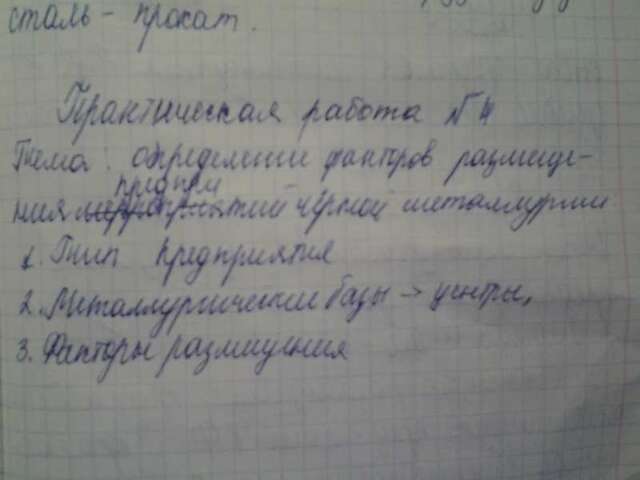 сталь - прокат.
Практическая работа №4
Тема. Определение факторов размеще-
предпри
ния мероприятий чёрной металлургии
1. Тип предприятия
2. Металлургические базы → центры,
3. Факторы размещения